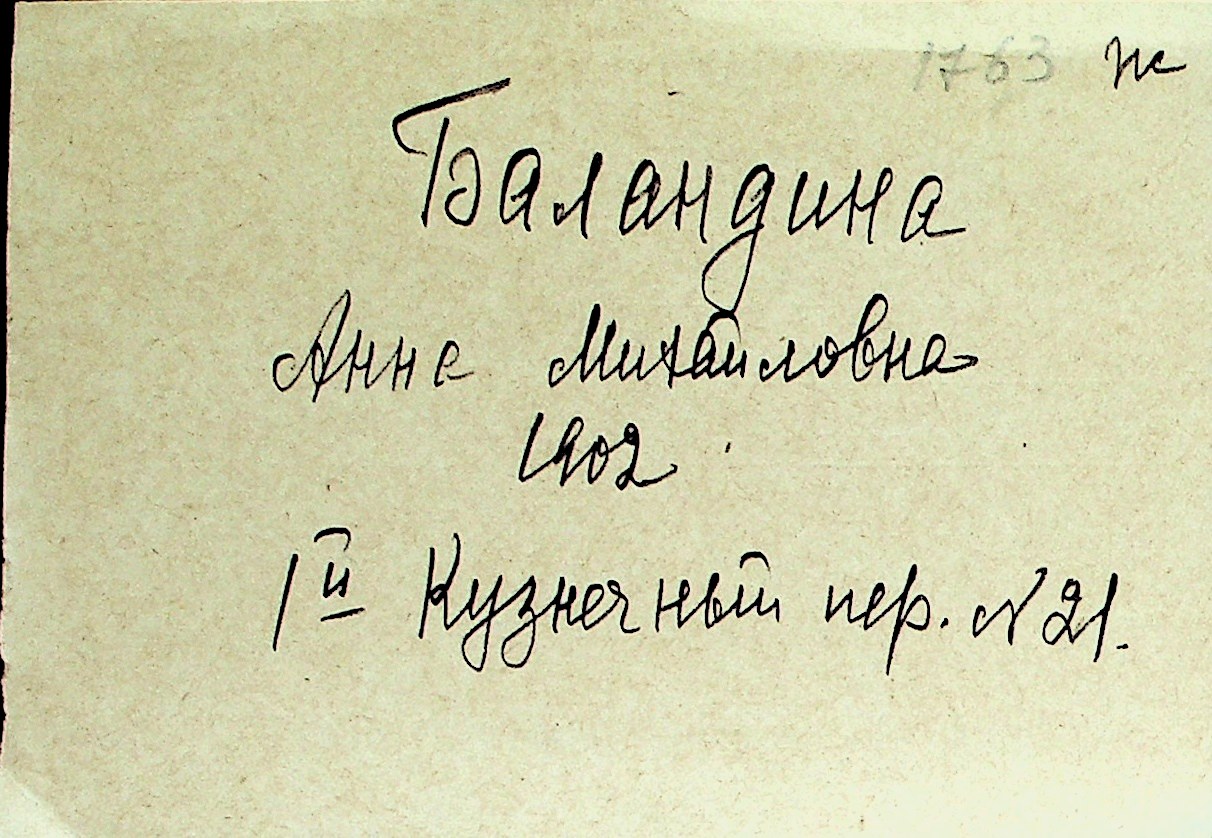 1763 ж
Баландина
Анна Михайловна
1902
1й Кузнечный пер. N 21.